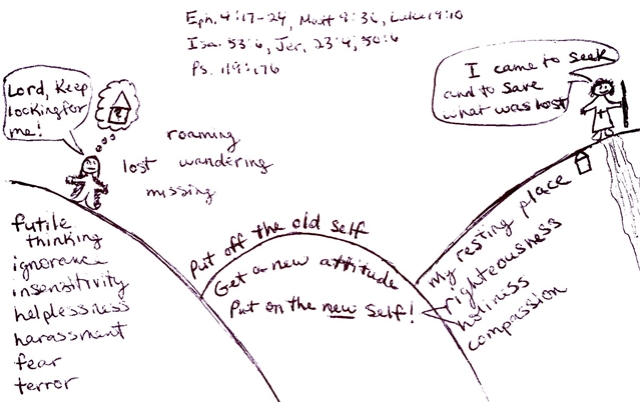 Eph. 4:17-24, Matt 9:36, Luke 19:10
Isa. 53:6, Jer. 23:4, 50:6
Ps. 119:176
Lord, Keep
looking for
me!
I came to seek
and to save
what was lost
roaming
lost wandering
missing
futile
thinking
ignorance
insensitivity
helplessness
harassment
fear
terror
Put off the old self
Get a new attitude
Put on the new self!
my resting place
righteousness
holiness
compassion